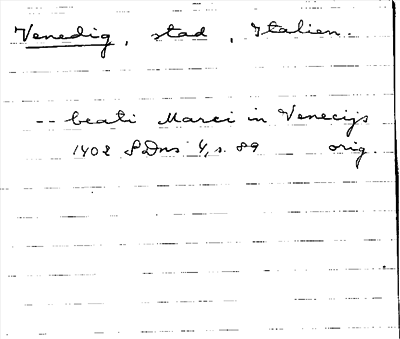 Venedig, stad, Italien.
-- beati Marci in Venecijs
1402 SDns 4, s. 89 orig.